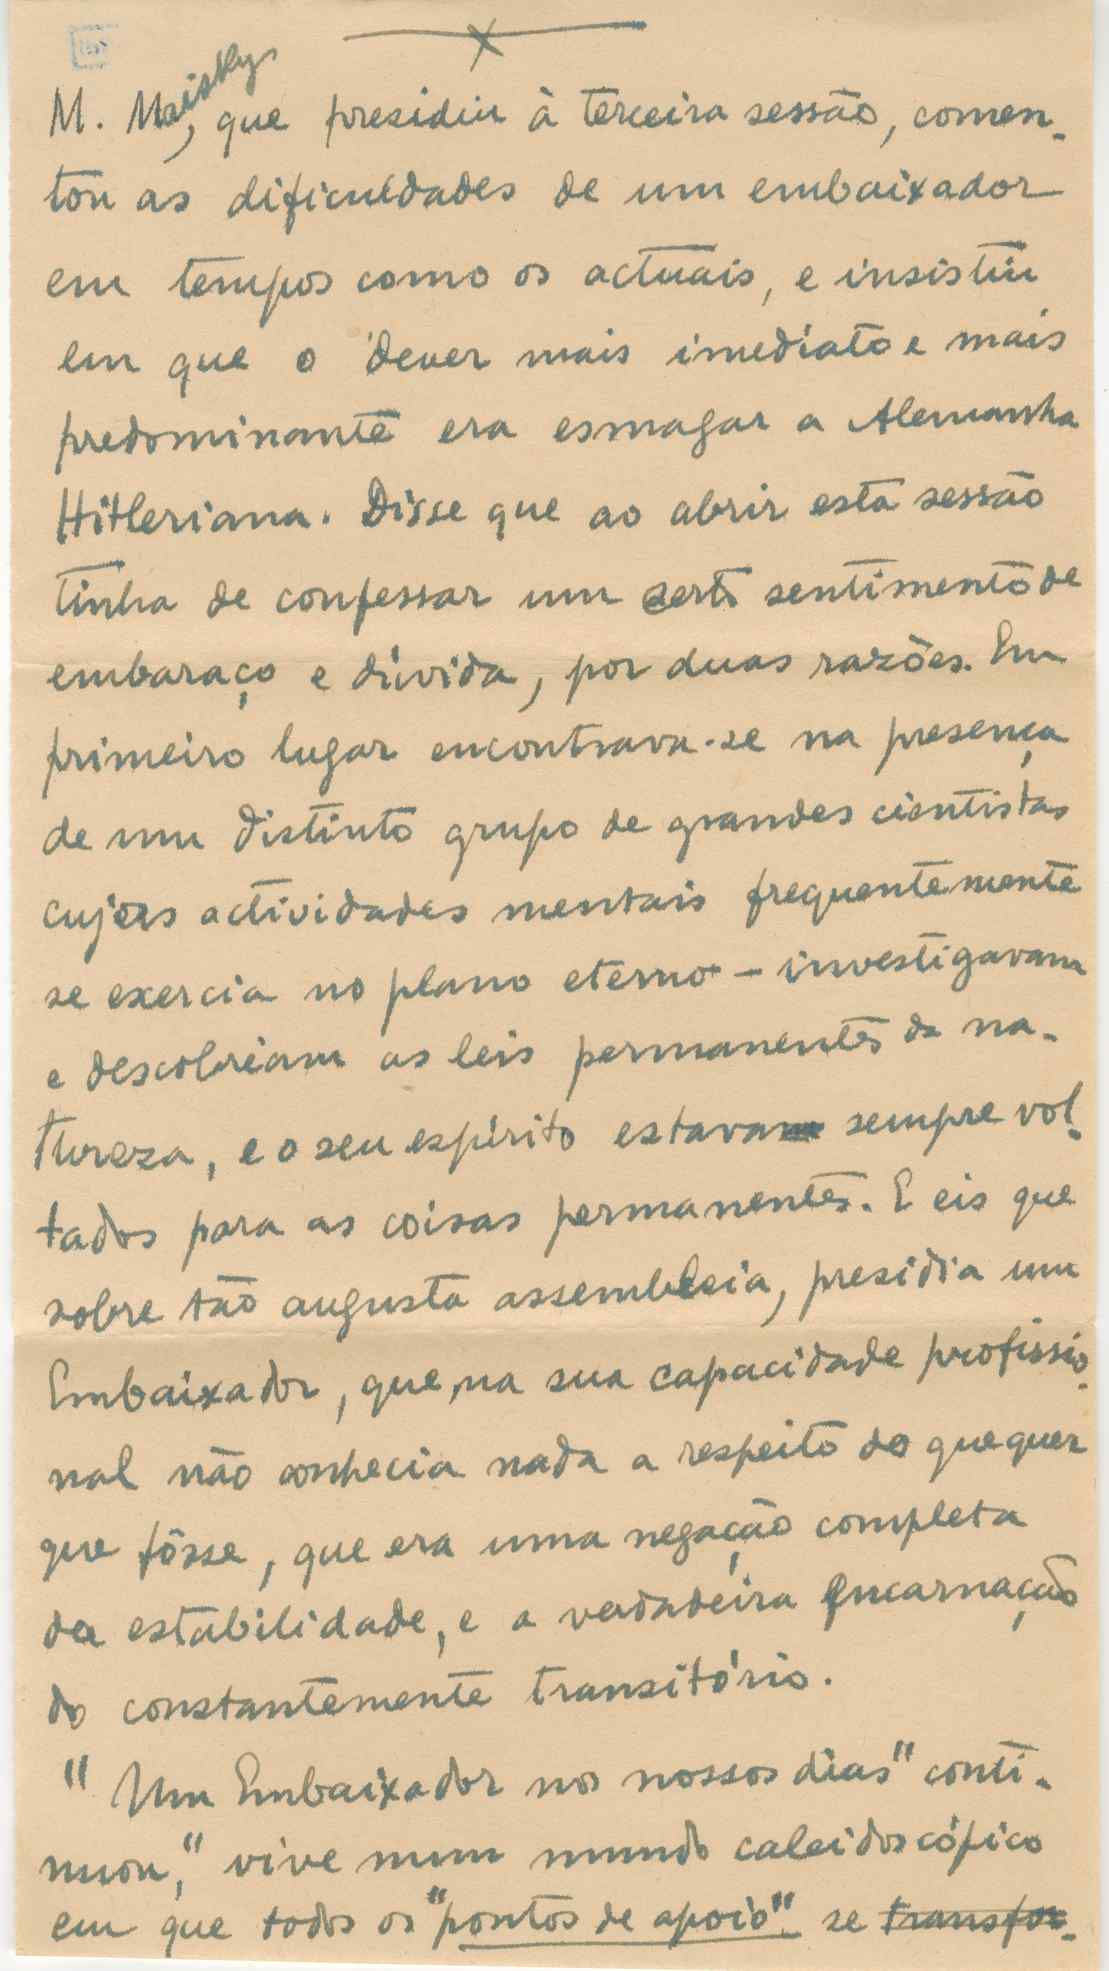 M. Maisky, que presidiu à terceira sessão, comen-
tou as dificuldades de um embaixador
em tempos como os actuais, e insistiu
em que o dever mais imediato e mais
predominante era esmagar a Alemanha
Hitleriana. Disse que ao abrir esta sessão
tinha de confessar um certo sentimento de
embaraço e dúvida, por duas razões. Em
primeiro lugar encontrava-se na presença
de um distinto grupo de grandes cientistas
cujas actividades mentais frequentemente
se exercia no plano eterno - investigavam
e descobriam as leis permanentes da na-
tureza, e o seu espírito estava sempre vol-
tados para as coisas permanentes. E eis que
sobre tão augusta assembleia, presidia um
Embaixador, que, na sua capacidade profissio-
nal não conhecia nada a respeito do quequer
que fôsse, que era uma negação completa
da estabilidade, e a verdadeira Encarnação
do constantemente transitório.
"Um Embaixador nos nossos dias" conti-
nuou, "vive num mundo caleidoscópico
em que todos os "pontos de apoio" se transfor-